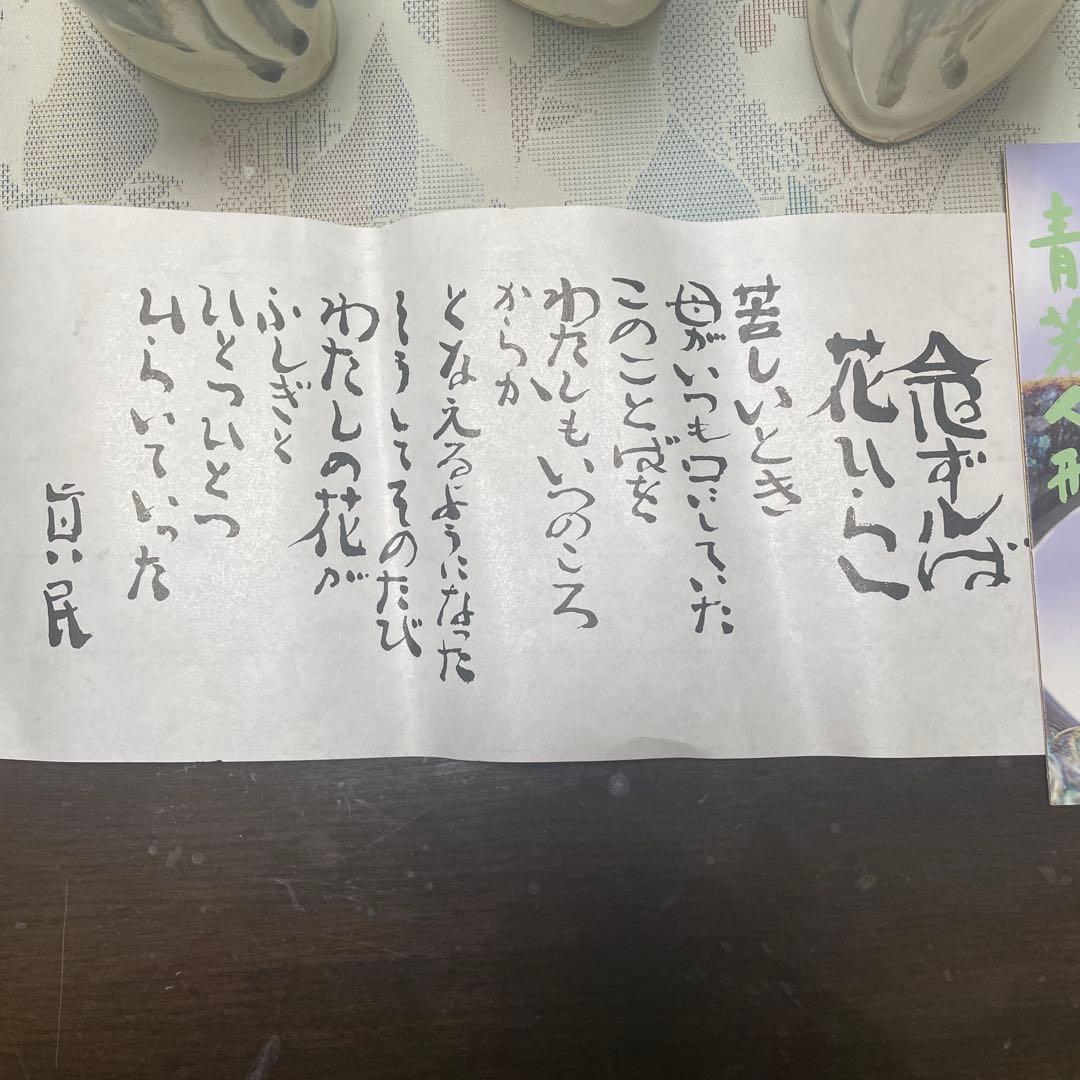 青芲人形
念ずれば
花ひらく
苦しいとき
母がいつも口にしていた
このことばを
わたしもいつのころ
からか
となえるようになった
そうしてそのたび
わたしの花が
ふしぎと
ひとつひとつ
ひらいていった
眞民